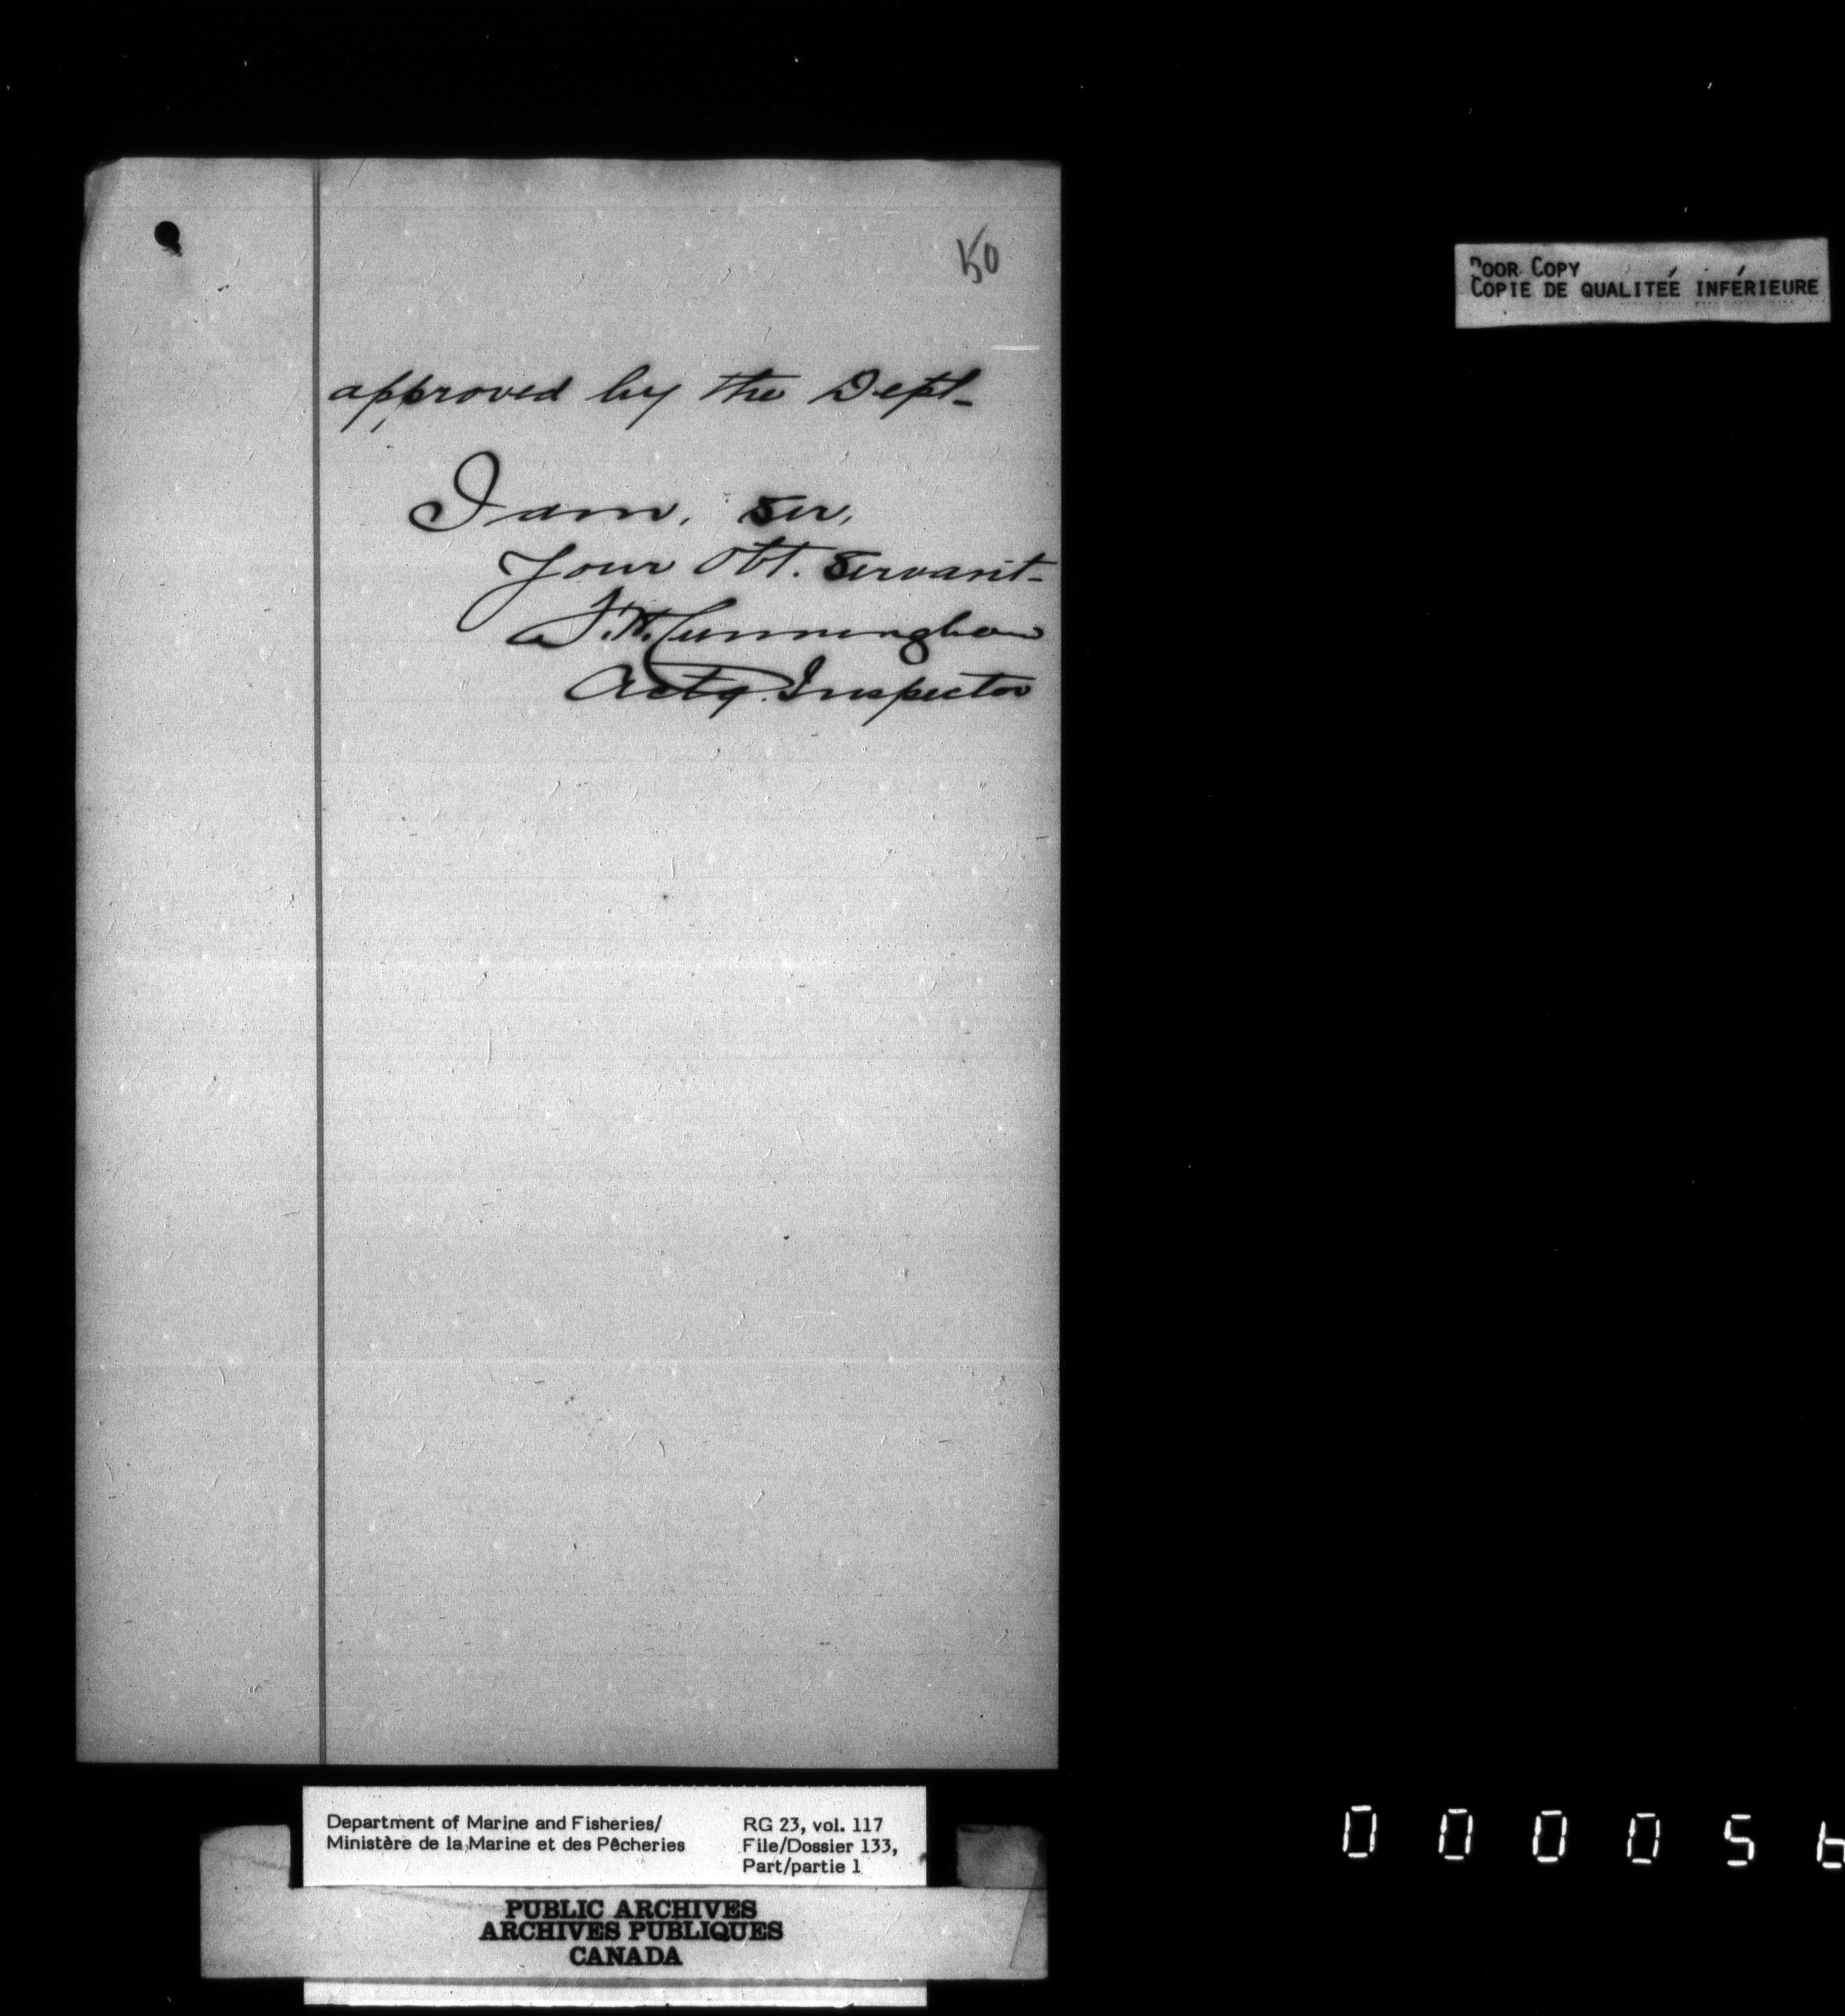 50
approved by the Dept-
I am, Sir,
Your Obt. Servant-
Cunningham
Actg. Inspector
POOR COPY
COPIE DE QUALITEÉ INFÉRIEURE
Department of Marine and Fisheries/
Ministère de la Marine et des Pêcheries
RG 23, vol. 117
File/Dossier 133,
Part/partie 1
PUBLIC ARCHIVES
ARCHIVES PUBLIQUES
CANADA
000056